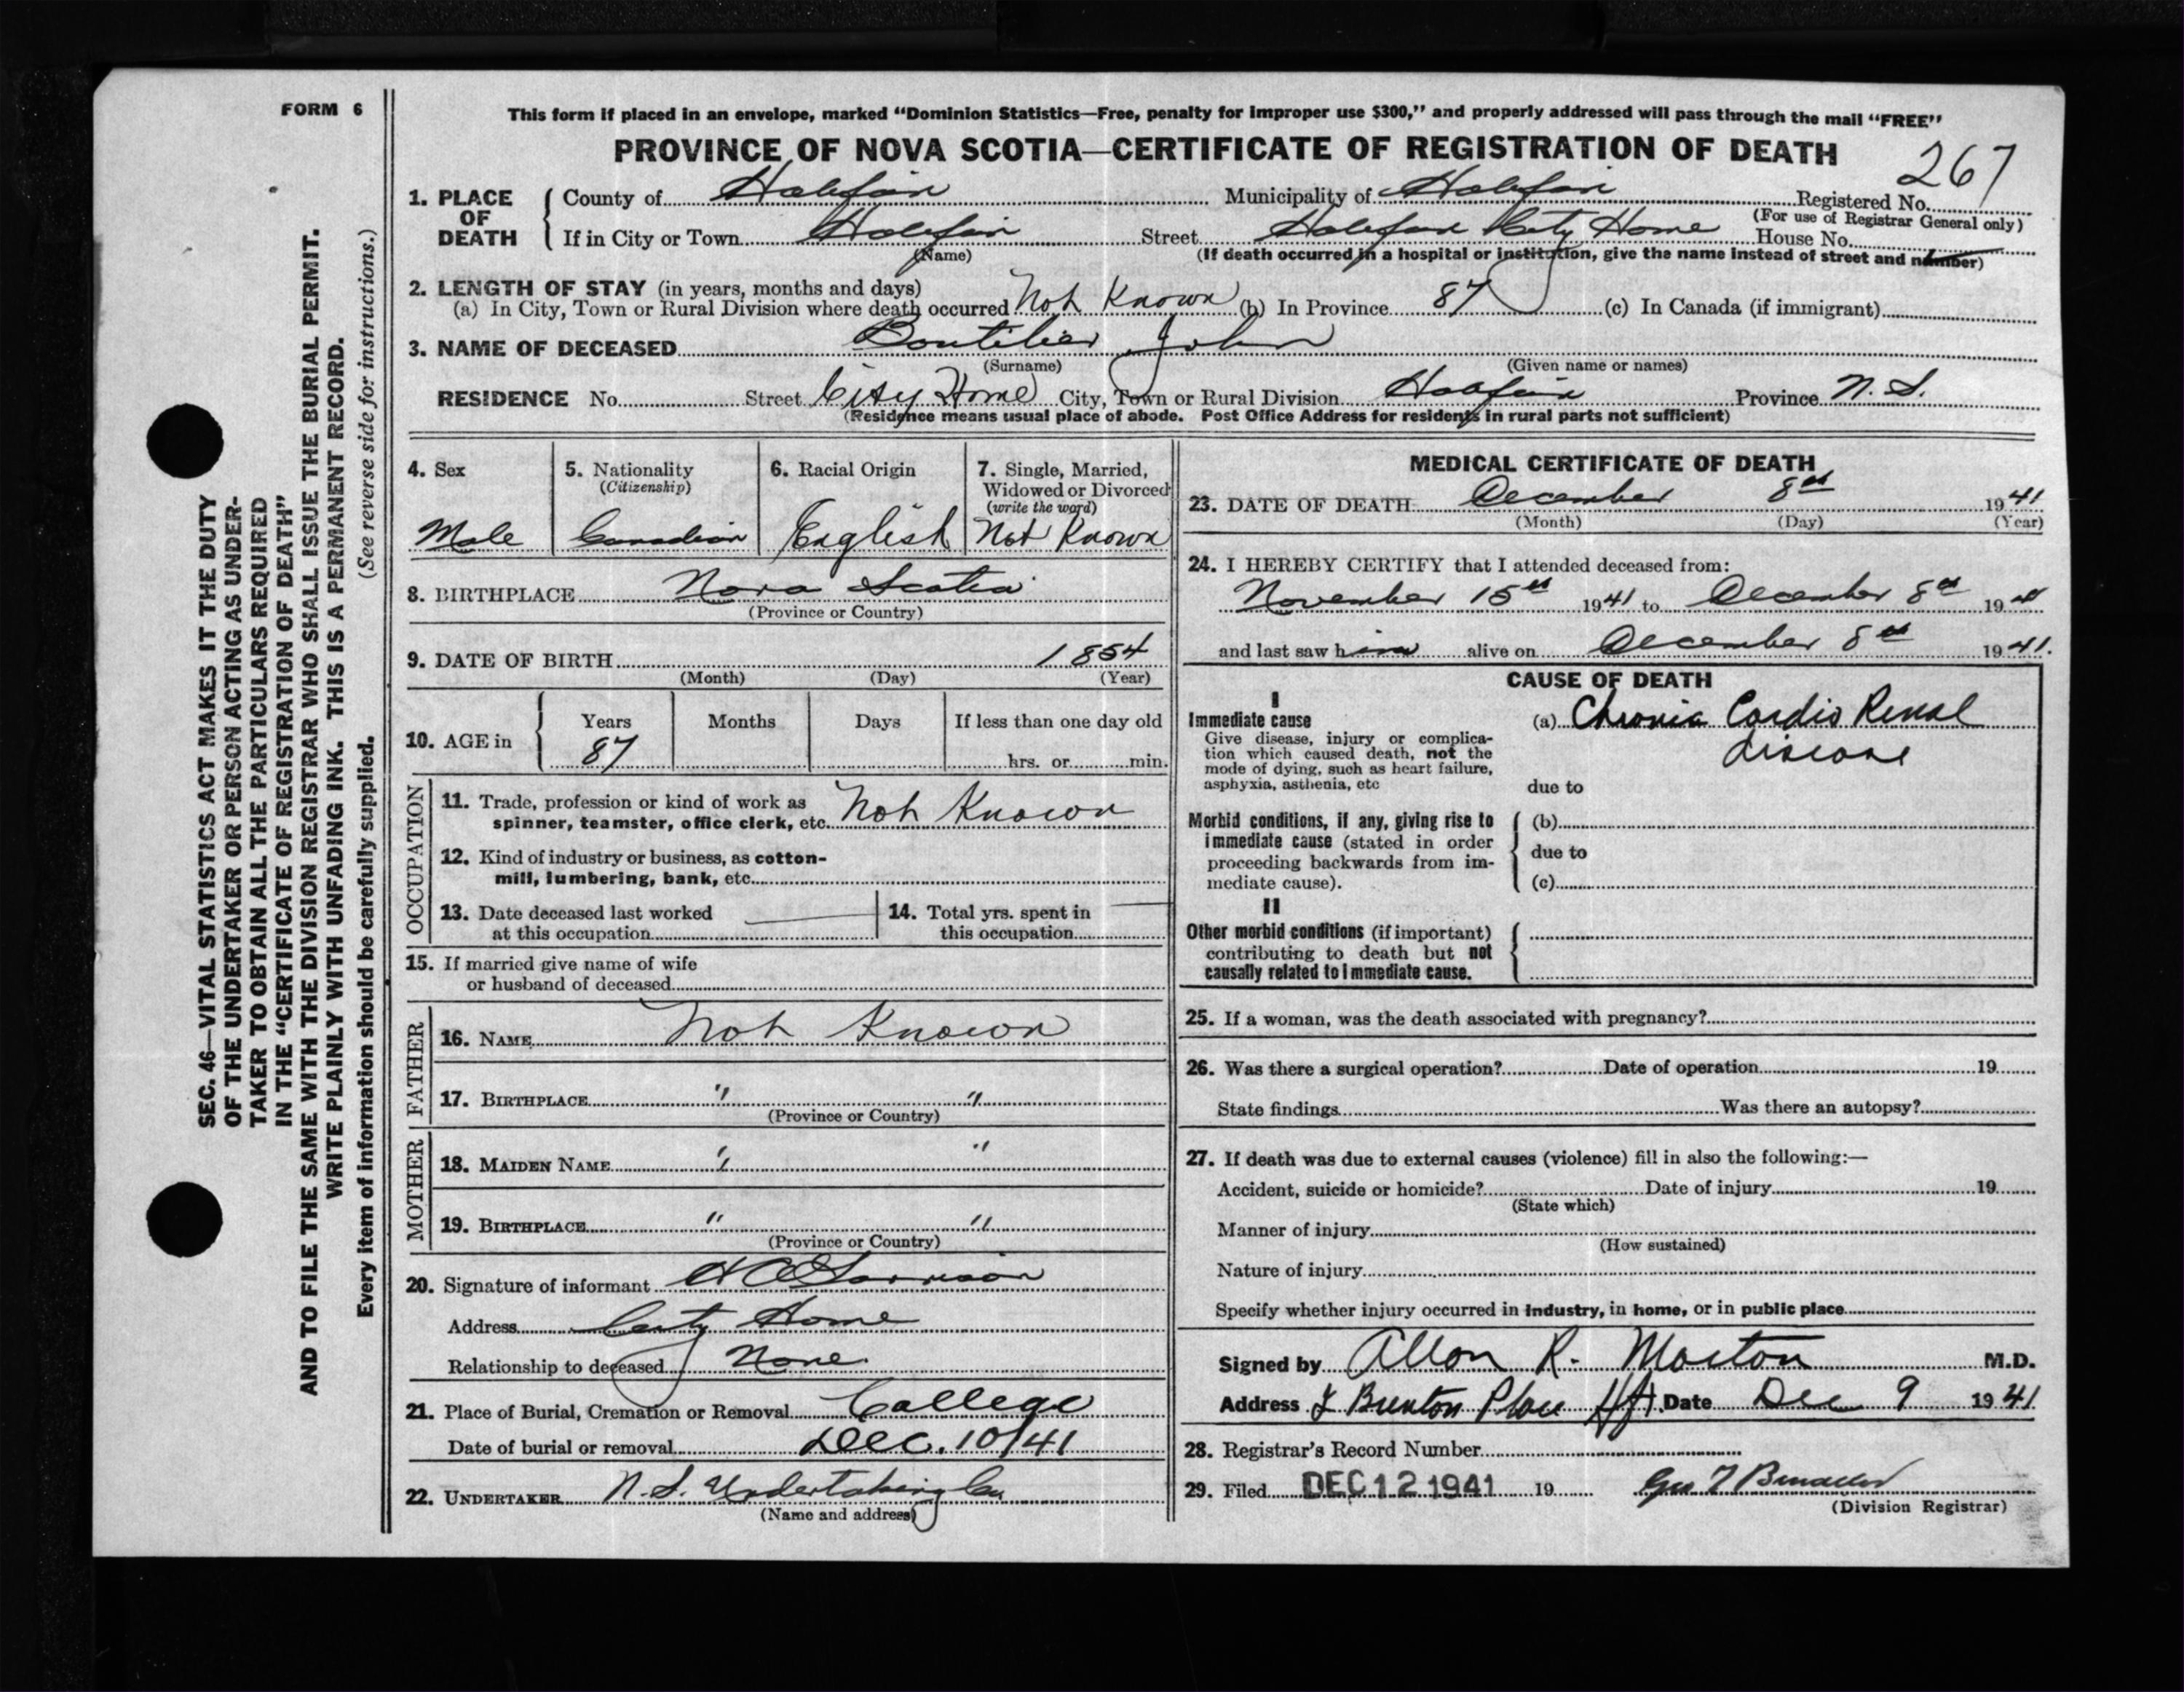 FORM 6
This form if placed in an envelope, marked “Dominion Statistics—Free, penalty for improper use $300,” and properly addressed will pass through the mail “FREE”
PROVINCE OF NOVA SCOTIA—CERTIFICATE OF REGISTRATION OF DEATH
267
1. PLACE OF DEATH
County of Halifax Municipality of Halifax Registered No.
(For use of Registrar General only)
If in City or Town Halifax Street Halifax City Home House No.
(Name) (If death occurred in a hospital or institution, give the name instead of street and number)
2. LENGTH OF STAY (in years, months and days)
(a) In City, Town or Rural Division where death occurred Not Known (b) In Province 87 (c) In Canada (if immigrant)
3. NAME OF DECEASED Boutilier John
(Surname) (Given name or names)
RESIDENCE No. Street City Home City, Town or Rural Division Halifax Province N. S.
(Residence means usual place of abode. Post Office Address for residents in rural parts not sufficient)
4. Sex
Male
5. Nationality
(Citizenship)
Canadian
6. Racial Origin
English
7. Single, Married,
Widowed or Divorced
(write the word)
Not Known
8. BIRTHPLACE Nova Scotia
(Province or Country)
9. DATE OF BIRTH 1854
(Month) (Day) (Year)
10. AGE in
Years Months Days If less than one day old
87 hrs. or min.
OCCUPATION
11. Trade, profession or kind of work as
spinner, teamster, office clerk, etc. Not Known
12. Kind of industry or business, as cotton-
mill, lumbering, bank, etc.
13. Date deceased last worked
at this occupation
14. Total yrs. spent in
this occupation
15. If married give name of wife
or husband of deceased
FATHER
16. NAME Not Known
17. BIRTHPLACE " "
(Province or Country)
MOTHER
18. MAIDEN NAME " "
19. BIRTHPLACE " "
(Province or Country)
20. Signature of informant
Address City Home
Relationship to deceased None.
21. Place of Burial, Cremation or Removal College
Date of burial or removal Dec. 10/41
22. UNDERTAKER N. S. Undertaking Co
(Name and address)
MEDICAL CERTIFICATE OF DEATH
23. DATE OF DEATH December 8th 1941
(Month) (Day) (Year)
24. I HEREBY CERTIFY that I attended deceased from:
November 15th 1941 to December 8th 1941
and last saw him alive on December 8th 1941.
CAUSE OF DEATH
I
Immediate cause
Give disease, injury or complica-
tion which caused death, not the
mode of dying, such as heart failure,
asphyxia, asthenia, etc
(a) Chronic Cardio Renal
disease
due to
Morbid conditions, if any, giving rise to
immediate cause (stated in order
proceeding backwards from im-
mediate cause).
(b)
due to
(c)
II
Other morbid conditions (if important)
contributing to death but not
causally related to immediate cause.
25. If a woman, was the death associated with pregnancy?
26. Was there a surgical operation? Date of operation 19
State findings Was there an autopsy?
27. If death was due to external causes (violence) fill in also the following:—
Accident, suicide or homicide? Date of injury 19
(State which)
Manner of injury
(How sustained)
Nature of injury
Specify whether injury occurred in industry, in home, or in public place
Signed by Allan R. Morton M.D.
Address Brenton Place Hfx. Date Dec 9 1941
28. Registrar's Record Number
29. Filed DEC 12 1941 19
(Division Registrar)
SEC. 46—VITAL STATISTICS ACT MAKES IT THE DUTY
OF THE UNDERTAKER OR PERSON ACTING AS UNDER-
TAKER TO OBTAIN ALL THE PARTICULARS REQUIRED
IN THE “CERTIFICATE OF REGISTRATION OF DEATH”
AND TO FILE THE SAME WITH THE DIVISION REGISTRAR WHO SHALL ISSUE THE BURIAL PERMIT.
WRITE PLAINLY WITH UNFADING INK. THIS IS A PERMANENT RECORD.
Every item of information should be carefully supplied. (See reverse side for instructions.)